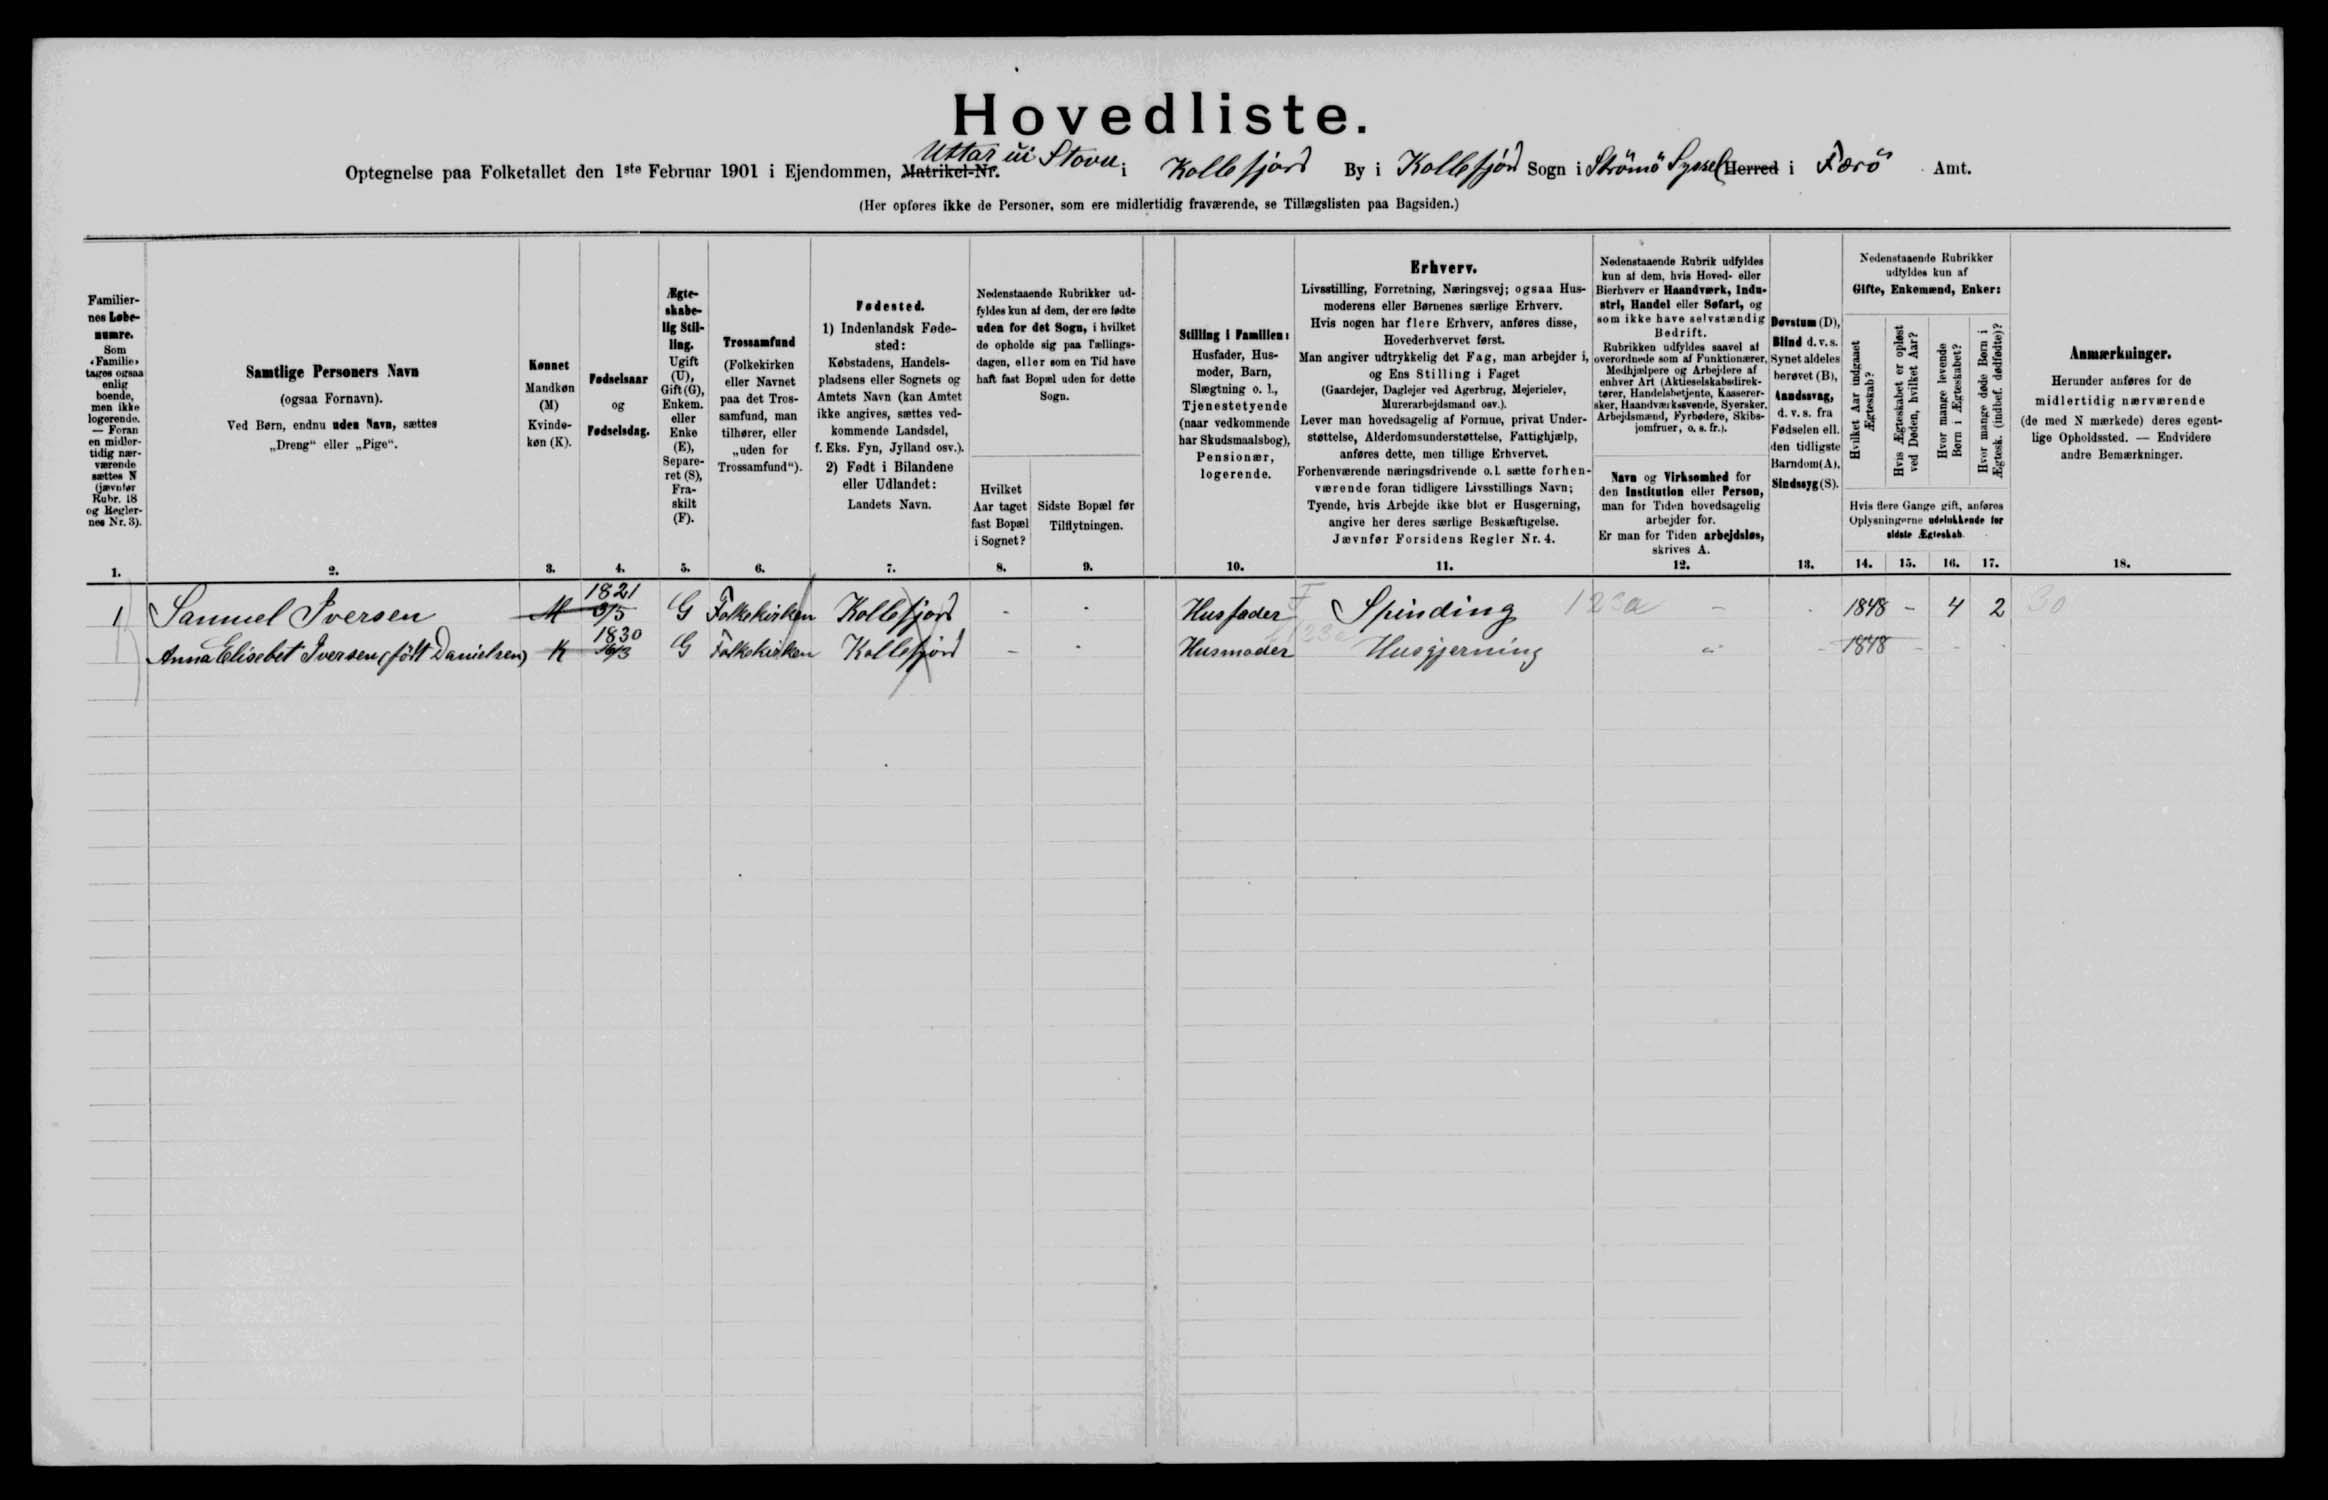 Hovedliste.
Optegnelse paa Folketallet den 1ste Februar 1901 i Ejendommen, Matrikel-Nr. Uttar ùi Stovu i Kollefjord By i Kollefjörd Sogn i Strömö Syssel Herred i Færö Amt.
(Her opføres ikke de Personer, som ere midlertidig fraværende, se Tillægslisten paa Bagsiden.)
Familier-
nes Løbe-
numre.
Som
«Familie»
tages ogsaa
enlig
boende,
men ikke
logerende.
— Foran
en midler-
tidig nær-
værende
sættes N
(jævnfør
Rubr. 18
og Regler-
nes Nr. 3).
Samtlige Personers Navn
(ogsaa Fornavn).
Ved Børn, endnu uden Navn, sættes
„Dreng“ eller „Pige“.
Kønnet
Mandkøn
(M)
Kvinde-
køn (K).
Fødselsaar
og
Fødselsdag.
Ægte-
skabe-
lig Stil-
ling.
Ugift
(U),
Gift (G),
Enkem.
eller
Enke
(E),
Separe-
ret (S),
Fra-
skilt
(F).
Trossamfund
(Folkekirken
eller Navnet
paa det Tros-
samfund, man
tilhører, eller
„uden for
Trossamfund“).
Fødested.
1) Indenlandsk Føde-
sted:
Købstadens, Handels-
pladsens eller Sognets og
Amtets Navn (kan Amtet
ikke angives, sættes ved-
kommende Landsdel,
f. Eks. Fyn, Jylland osv.).
2) Født i Bilandene
eller Udlandet:
Landets Navn.
Nedenstaaende Rubrikker ud-
fyldes kun af dem, der ere fødte
uden for det Sogn, i hvilket
de opholde sig paa Tællings-
dagen, eller som en Tid have
haft fast Bopæl uden for dette
Sogn.
Hvilket
Aar taget
fast Bopæl
i Sognet?
Sidste Bopæl før
Tilflytningen.
Stilling i Familien:
Husfader, Hus-
moder, Barn,
Slægtning o. l.,
Tjenestetyende
(naar vedkommende
har Skudsmaalsbog),
Pensionær,
logerende.
Erhverv.
Livsstilling, Forretning, Næringsvej; ogsaa Hus-
moderens eller Børnenes særlige Erhverv.
Hvis nogen har flere Erhverv, anføres disse,
Hovederhvervet først.
Man angiver udtrykkelig det Fag, man arbejder i,
og Ens Stilling i Faget
(Gaardejer, Daglejer ved Agerbrug, Mejerielev,
Murerarbejdsmand osv.).
Lever man hovedsagelig af Formue, privat Under-
støttelse, Alderdomsunderstøttelse, Fattighjælp,
anføres dette, men tillige Erhvervet.
Forhenværende næringsdrivende o. l. sætte forhen-
værende foran tidligere Livsstillings Navn;
Tyende, hvis Arbejde ikke blot er Husgerning,
angive her deres særlige Beskæftigelse.
Jævnfør Forsidens Regler Nr. 4.
Nedenstaaende Rubrik udfyldes
kun af dem, hvis Hoved- eller
Bierhverv er Haandværk, Indu-
stri, Handel eller Søfart, og
som ikke have selvstændig
Bedrift.
Rubrikken udfyldes saavel af
overordnede som af Funktionærer,
Medhjælpere og Arbejdere af
enhver Art (Aktieselskabsdirek-
tører, Handelsbetjente, Kasserer-
sker, Haandværkssvende, Syersker,
Arbejdsmænd, Fyrbødere, Skibs-
jomfruer, o. s. fr.).
Navn og Virksomhed for
den Institution eller Person,
man for Tiden hovedsagelig
arbejder for.
Er man for Tiden arbejdsløs,
skrives A.
Døvstum (D),
Blind d. v. s.
Synet aldeles
berøvet (B),
Aandssvag,
d. v. s. fra
Fødselen ell.
den tidligste
Barndom (A),
Sindssyg (S).
Nedenstaaende Rubrikker
udfyldes kun af
Gifte, Enkemænd, Enker:
Hvilket Aar indgaaet
Ægteskab?
Hvis Ægteskabet er opløst
ved Døden, hvilket Aar?
Hvor mange levende
Børn i Ægteskabet?
Hvor mange døde Børn i
Ægtesk. (indbef. dødfødte)?
Hvis flere Gange gift, anføres
Oplysningerne udelukkende for
sidste Ægteskab.
Anmærkninger.
Herunder anføres for de
midlertidig nærværende
(de med N mærkede) deres egent-
lige Opholdssted. — Endvidere
andre Bemærkninger.
1. 2. 3. 4. 5. 6. 7. 8. 9. 10. 11. 12. 13. 14. 15. 16. 17. 18.
1 Samuel Iversen M 1821 9/5 G Folkekirken Kollefjord - - Husfader F Spinding 123a - - 1848 - 4 2 30
Anna Elisebet Iversen (fött Danielsen) K 1830 G Folkekirken Kollefjörd - - Husmoder Husgjerning - 1848 - - -